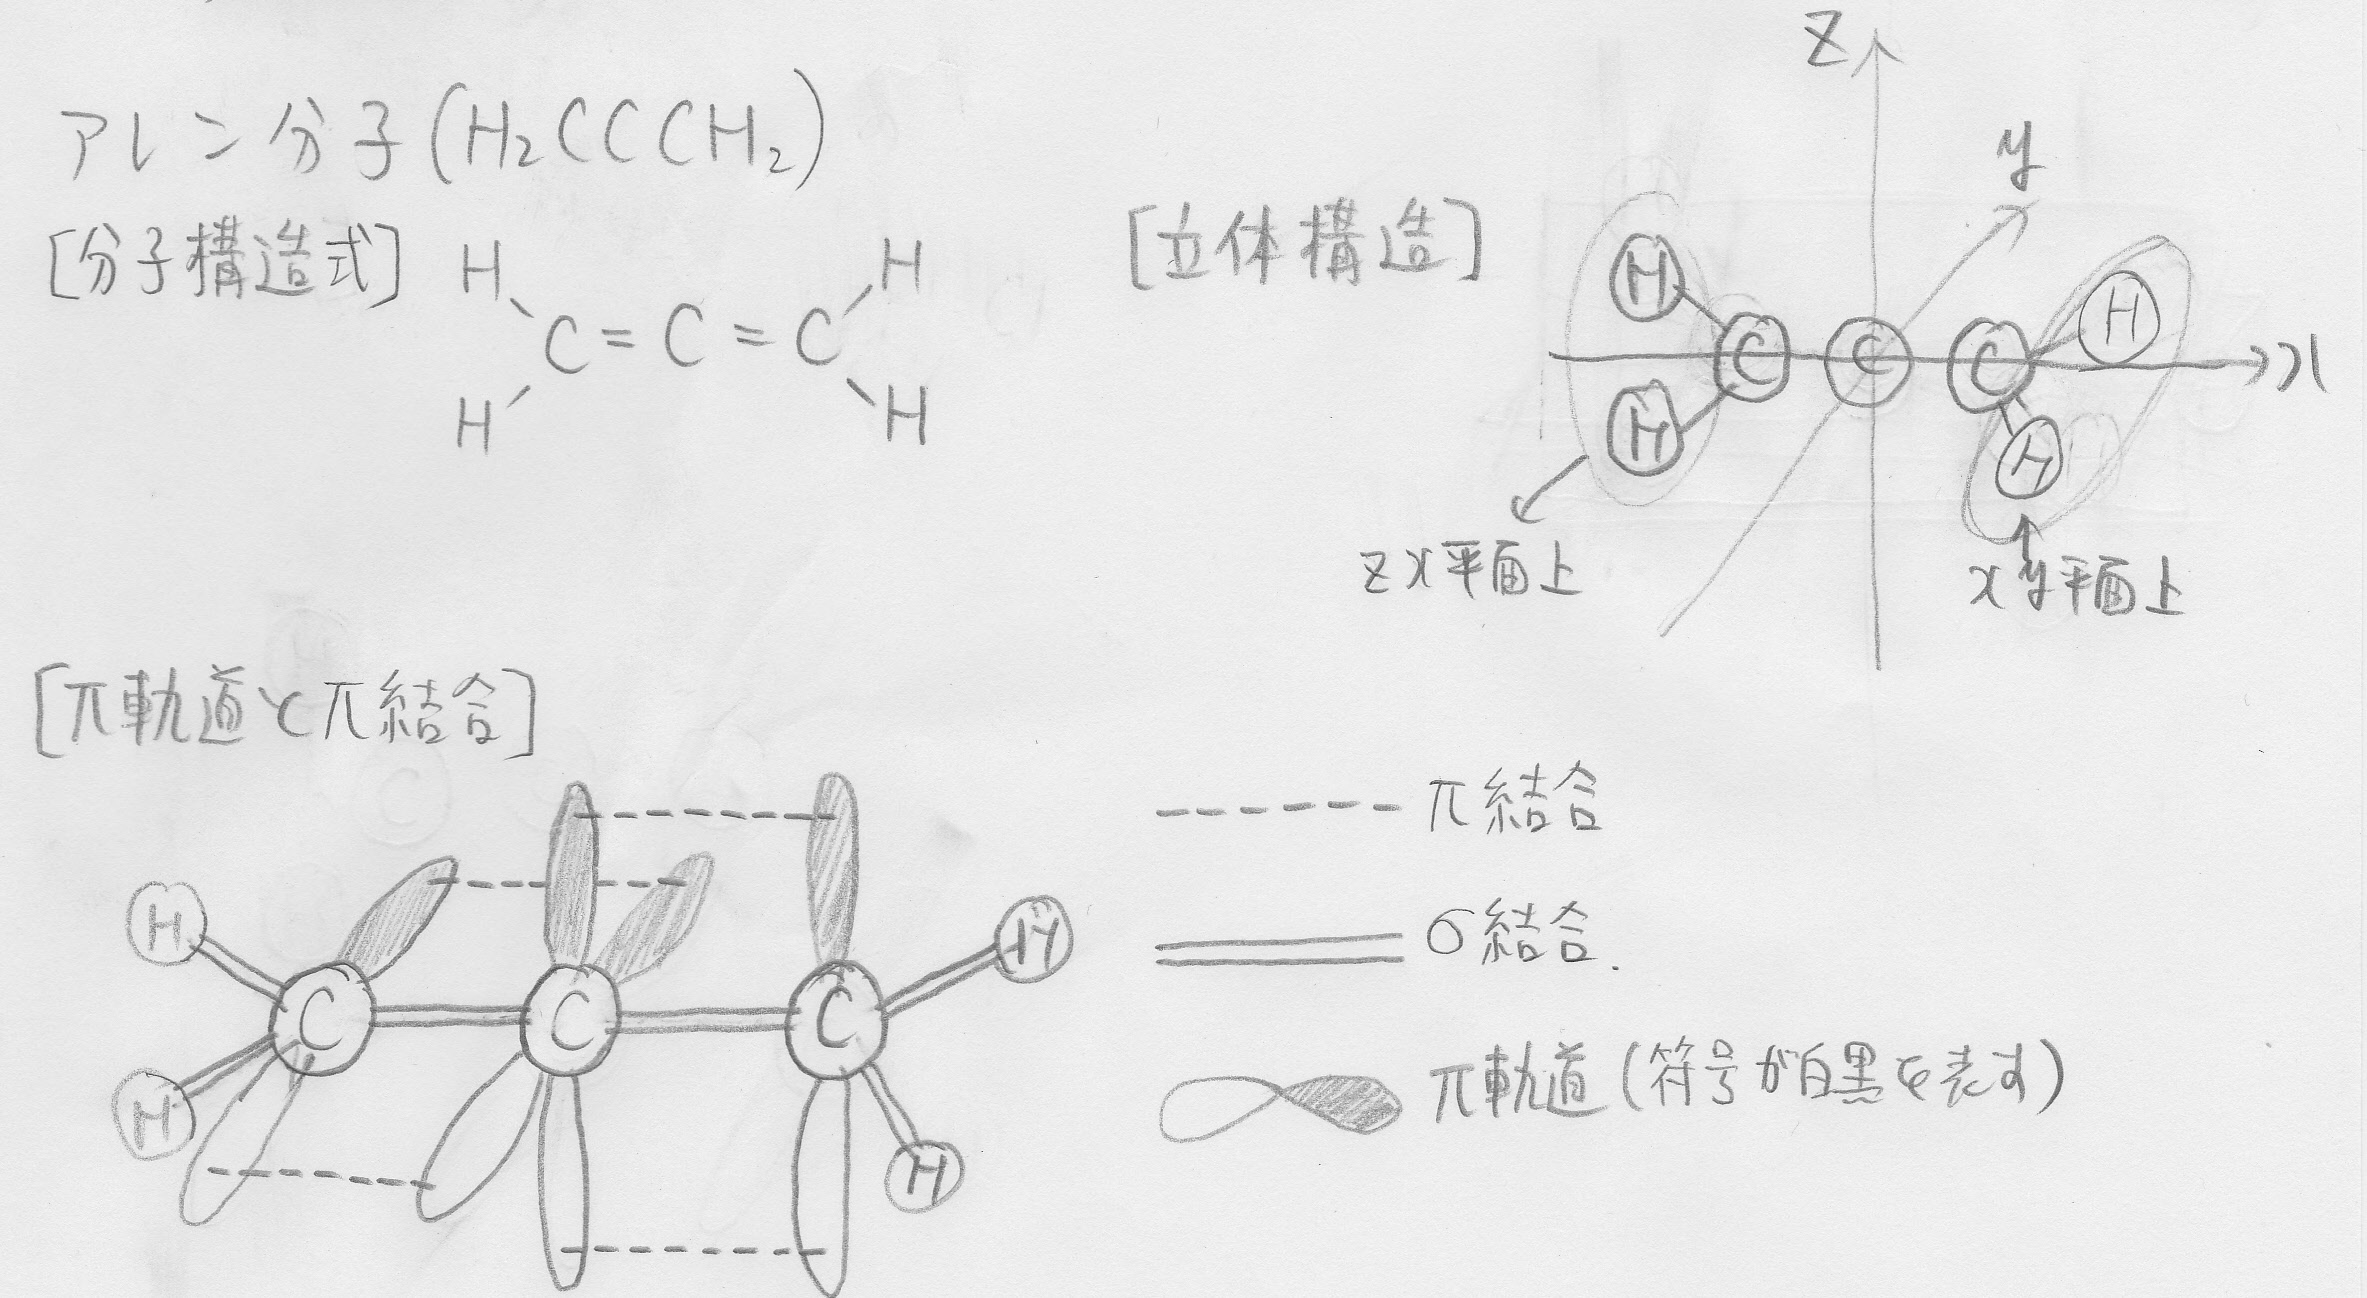 アレン分子(H₂CCCH₂)
[分子構造式]
H H
C=C=C
H H
[立体構造]
z
y
x
H H
C C C
H H
zx平面上
xy平面上
[π軌道とπ結合]
H H
C C C
H H
π結合
σ結合.
π軌道(符号が白黒を表す)